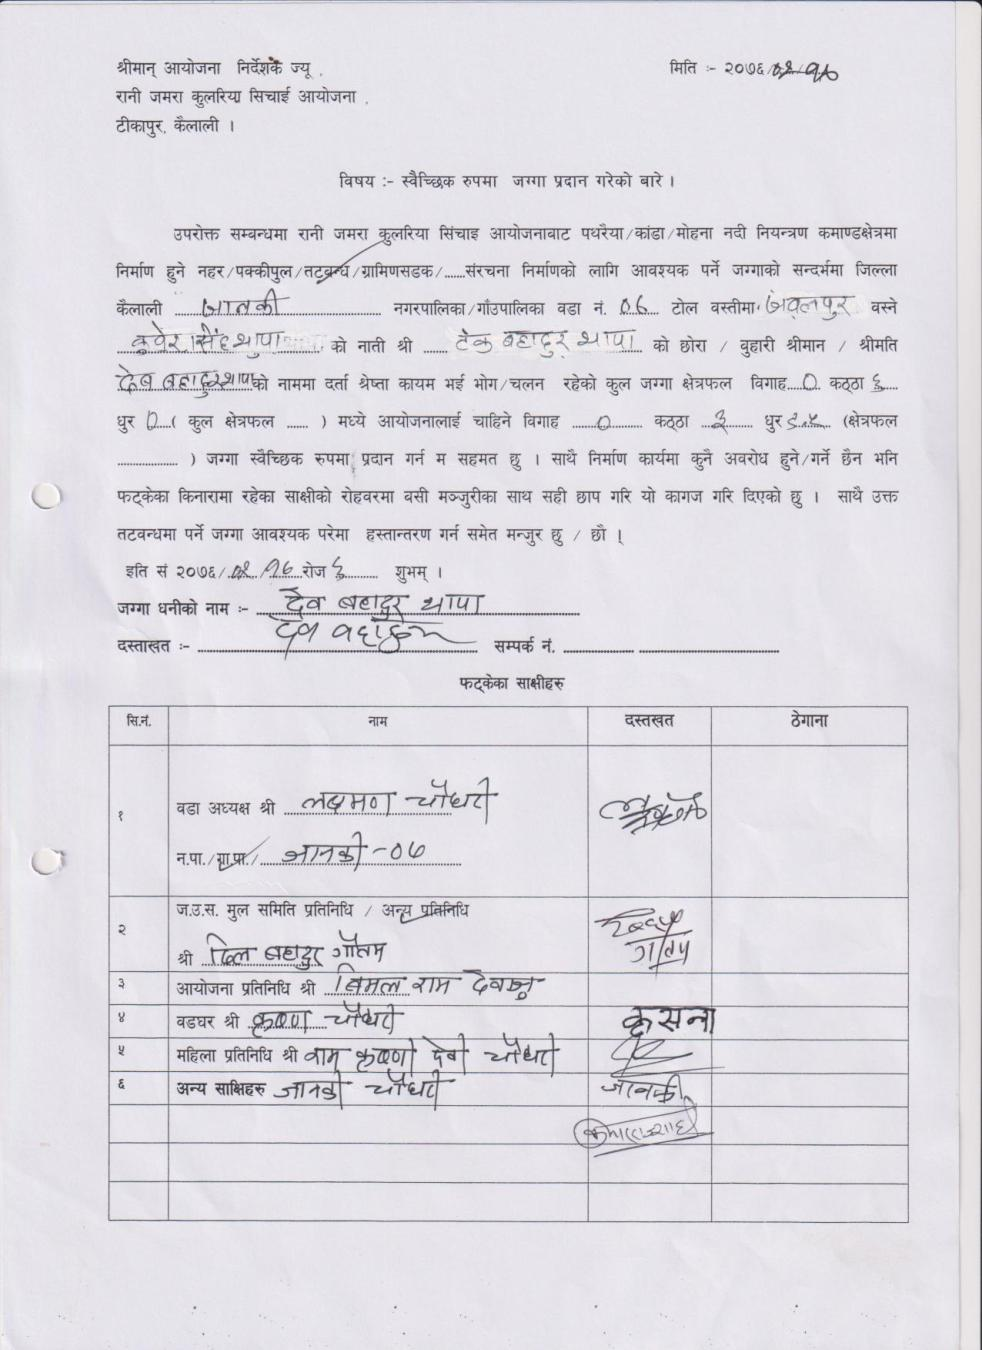 श्रीमान् आयोजना निर्देशक ज्यू ,
मिति :- २०७६/०२/१७
रानी जमरा कुलरिया सिचाई आयोजना ,
टीकापुर, कैलाली ।
विषय :- स्वैच्छिक रुपमा जग्गा प्रदान गरेको बारे ।
उपरोक्त सम्बन्धमा रानी जमरा कुलरिया सिंचाइ आयोजनाबाट पथरैया/कांडा/मोहना नदी नियन्त्रण कमाण्डक्षेत्रमा
निर्माण हुने नहर/पक्कीपुल/तटबन्ध/ग्रामिणसडक/......संरचना निर्माणको लागि आवश्यक पर्ने जग्गाको सन्दर्भमा जिल्ला
कैलाली जानकी नगरपालिका/गाँउपालिका वडा नं. ०७ टोल वस्तीमा जवलपुर वस्ने
कुवेर सिंह थापा को नाती श्री टेक बहादुर थापा को छोरा / बुहारी श्रीमान / श्रीमति
देव बहादुर थापा को नाममा दर्ता श्रेष्ता कायम भई भोग/चलन रहेको कुल जग्गा क्षेत्रफल विगाह ० कठ्ठा ६
धुर ० ( कुल क्षेत्रफल ...... ) मध्ये आयोजनालाई चाहिने विगाह ० कठ्ठा ३ धुर (क्षेत्रफल
.................... ) जग्गा स्वैच्छिक रुपमा प्रदान गर्न म सहमत छु । साथै निर्माण कार्यमा कुनै अवरोध हुने/गर्ने छैन भनि
फट्केका किनारामा रहेका साक्षीको रोहवरमा वसी मञ्जुरीका साथ सही छाप गरि यो कागज गरि दिएको छु । साथै उक्त
तटवन्धमा पर्ने जग्गा आवश्यक परेमा हस्तान्तरण गर्न समेत मन्जुर छु / छौ ।
इति सं २०७६/०२/१७ रोज ६ शुभम् ।
जग्गा धनीको नाम :- देव बहादुर थापा
दस्ताखत :- देव बहादुर सम्पर्क नं. .................. ....................................
फट्केका साक्षीहरु
सि.नं. नाम दस्तखत ठेगाना
१ वडा अध्यक्ष श्री लक्ष्मण चौधरी
न.पा./गा.पा./ जानकी -०७
२ ज.उ.स. मुल समिति प्रतिनिधि / अन्य प्रतिनिधि
श्री दिल बहादुर गौतम
३ आयोजना प्रतिनिधि श्री बिमल राम
४ वडघर श्री कृष्ण चौधरी कृसना
५ महिला प्रतिनिधि श्री राम कृष्णी देवी चौधरी
६ अन्य साक्षिहरु जानकी चौधरी जानकी